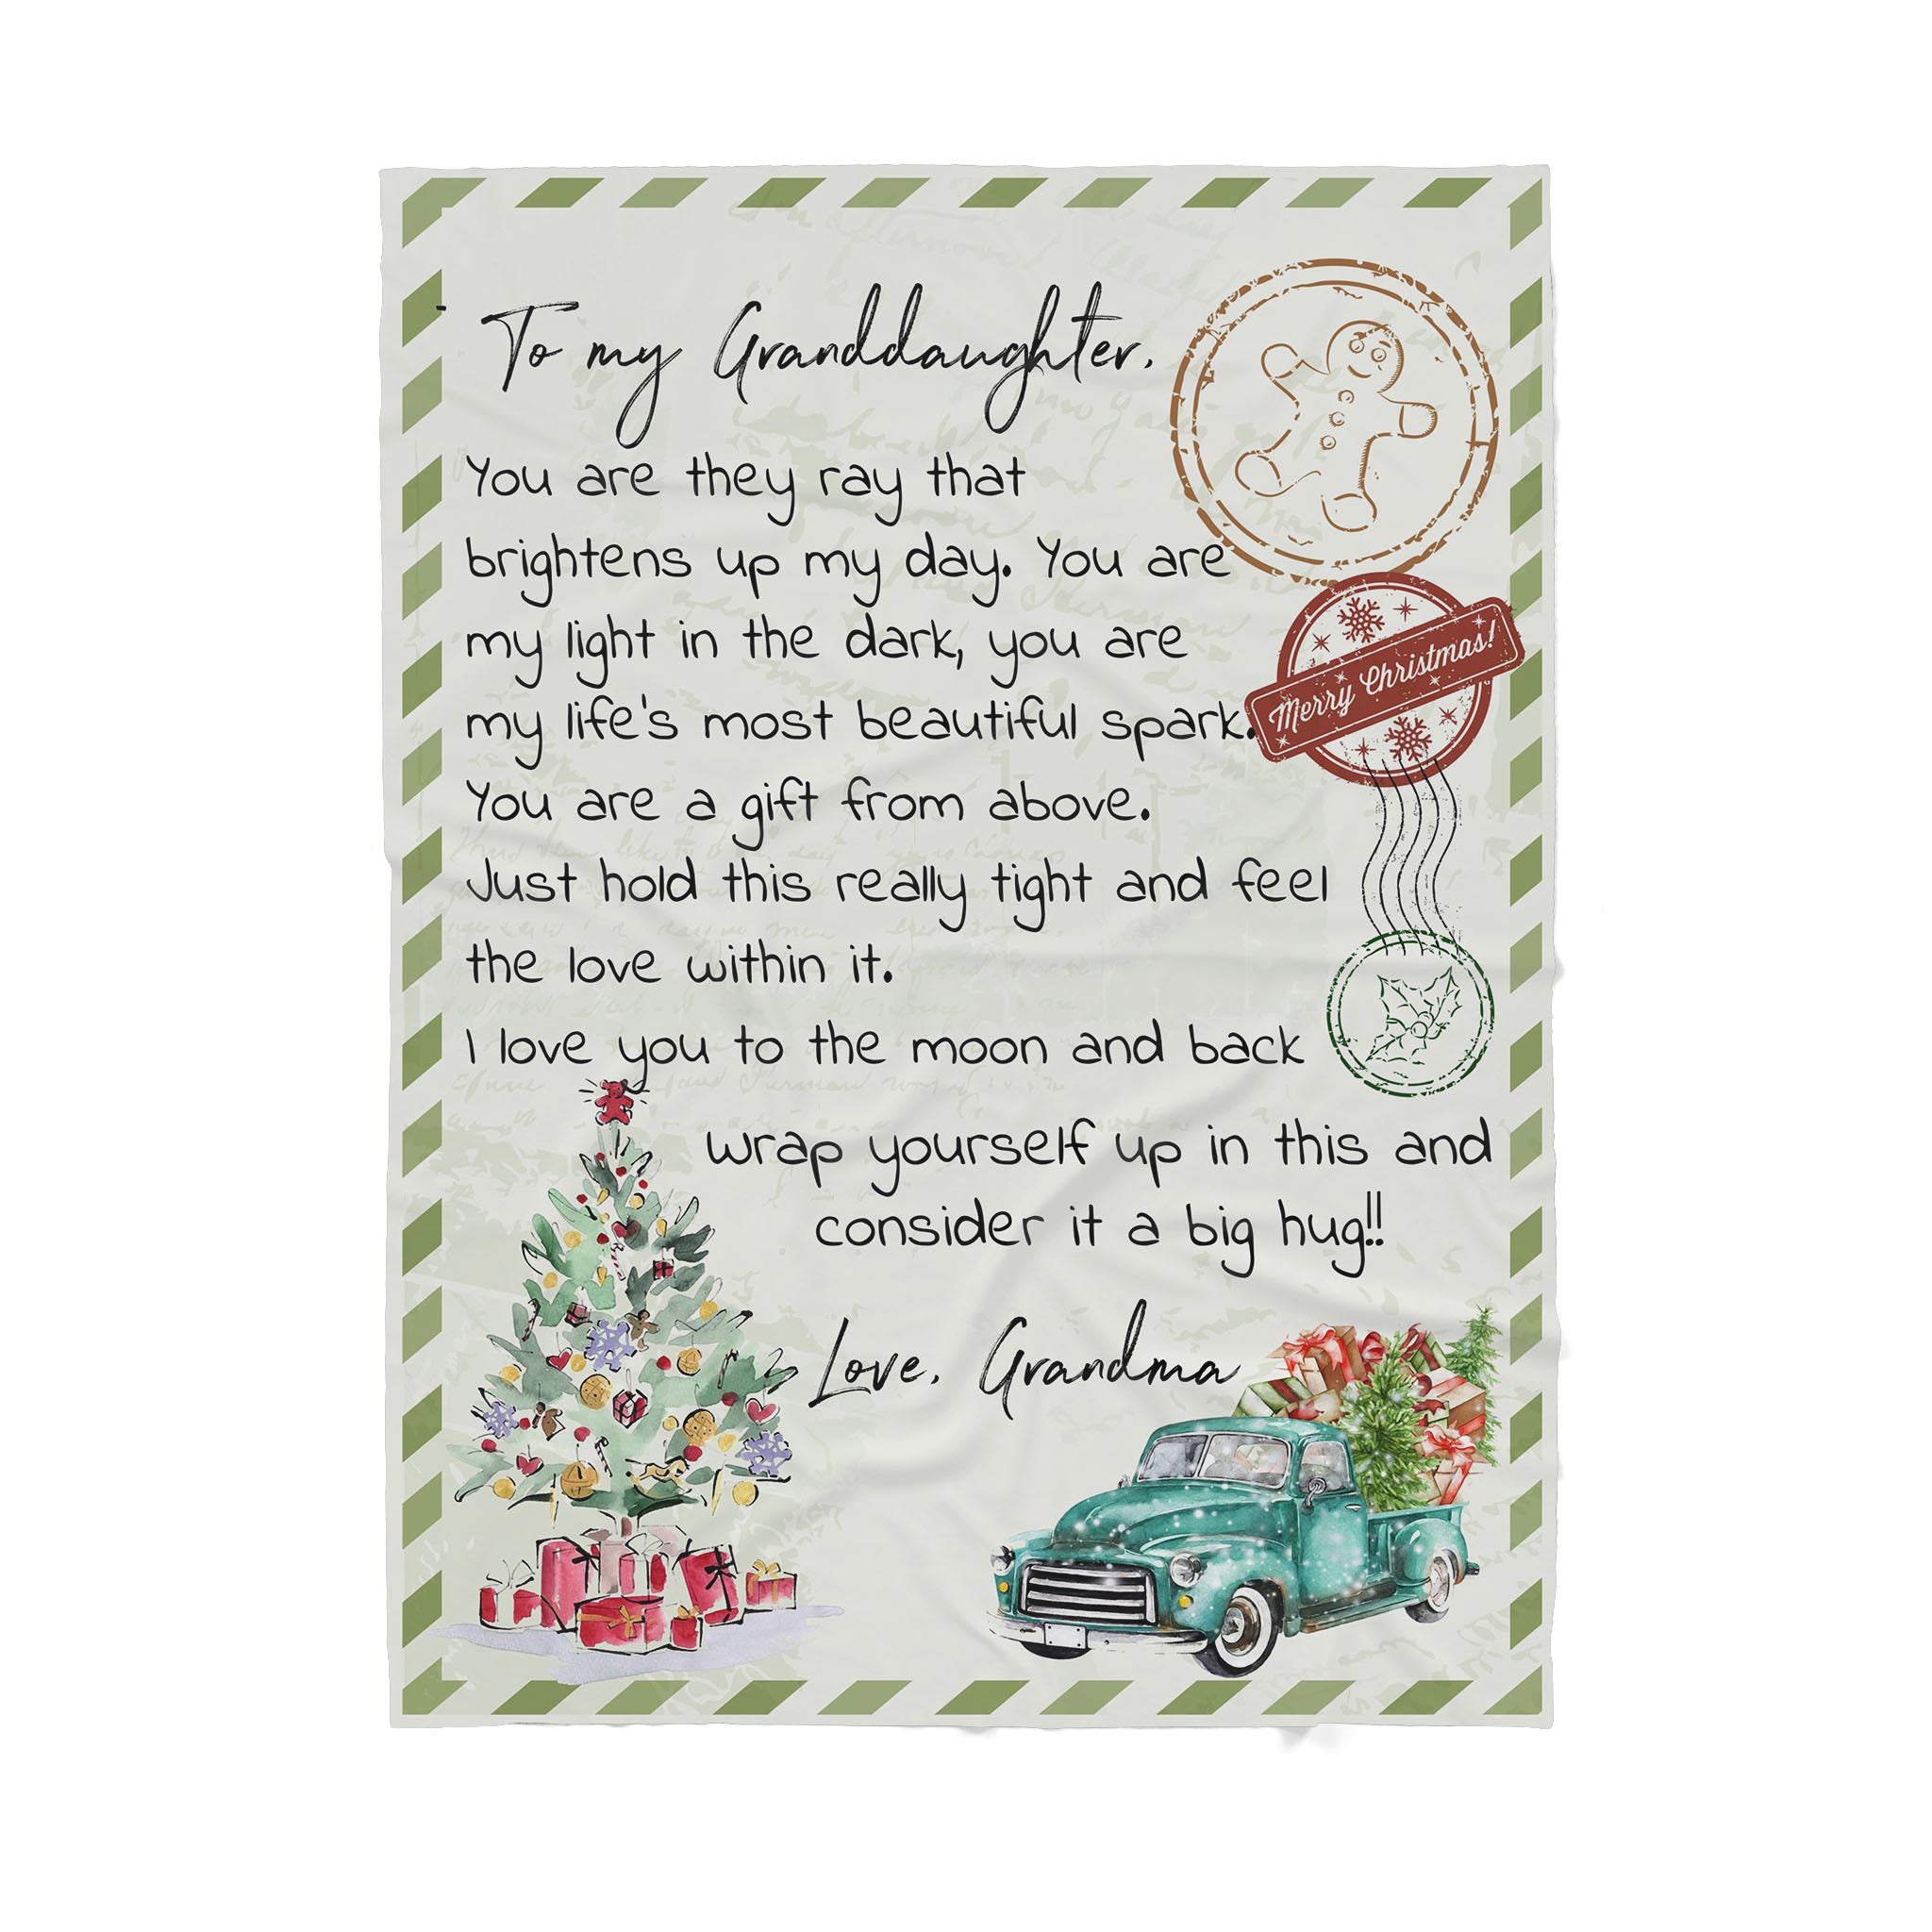 To my Granddaughter,
You are they ray that
brightens up my day. You are
my light in the dark, you are
my life's most beautiful spark.
You are a gift from above.
Just hold this really tight and feel
the love within it.
I love you to the moon and back
wrap yourself up in this and
consider it a big hug!!
Love, Grandma
Merry Christmas!